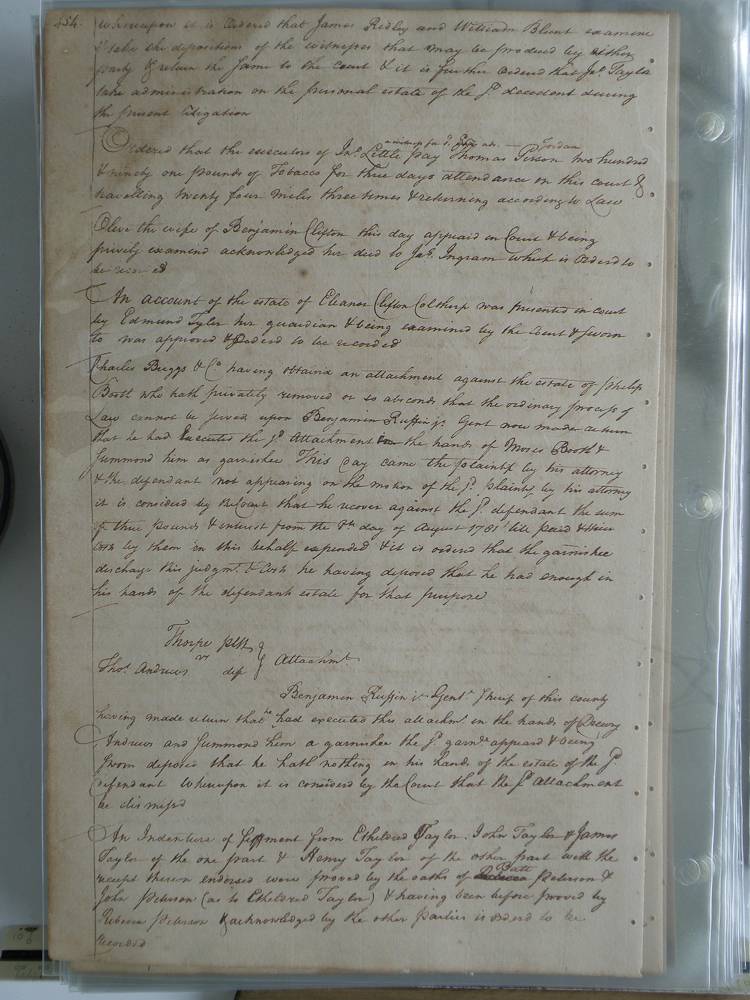 454.
whereupon it is Ordered that James Ridley and William Blunt examine
& take the depositions of the witnesses that may be produced by either
party & return the same to the court & it is further Ordered that Jno. Taylor
take administration on the personal estate of the sd. decedent during
the present litigation
Ordered that the executors of Jno. Little pay Thomas Person two hundred
& ninety one pounds of Tobacco for three days attendance on this court &
travelling twenty four miles three times & returning according to Law
Olive the wife of Benjamin Clifton this day appeard in Court & being
privily examend acknowledged her deed to Jas. Ingram which is Orderd to
be recorded
An account of the estate of Eleanor Clifton Colthorp was presented in court
by Edmund Tyler her guardian & being examined by the Court & sworn
to was approved & Orderd to be recorded
Charles Briggs & Co having obtaind an attachment against the estate of Philip
Booth who hath privately removed or so absconds that the ordinary process of
Law cannot be served upon Benjamin Ruffin jr. Gent now made return
that he had Executed the sd. Attachment in the hands of Moses Booth &
summond him as garnishee This day came the plaintif by his attorney
& the defendant not appearing on the motion of the sd. plaintif by his attorney
it is considerd by the Court that he recover against the sd. defendant the sum
of three pounds & interest from the day of August 1781 till paid & their
costs by them in this behalf expended & it is ordered that the garnishee
discharge this judgmt. & costs he having deposed that he had enough in
his hands of the defendants estate for that purpose
Thorpe plt
vs
Thos. Andrews def } Attachmt.
Benjamin Ruffin jr Gent. Sherif of this county
having made return that he had executed this attachmt. in the hands of Drewry
Andrews and summond him a garnishee the sd. garne. appeard & being
sworn deposed that he hath nothing in his hands of the estate of the sd.
defendant Whereupon it is considerd by the Court that the sd. Attachment
be dismissd
An Indenture of feffment from Etheldred Taylor John Taylor & James
Taylor of the one part & Henry Taylor of the other part with the
receipt thereon endorsed were proved by the oaths of Batt Peterson &
John Peterson (as to Etheldred Taylor) & having been before proved by
Rebecca Peterson & acknowledged by the other Parties is orderd to be
recorded